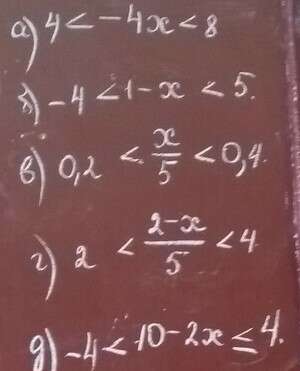 а) 4 < -4x < 8
б) -4 < 1 - x < 5.
в) 0,2 < x/5 < 0,4.
г) 2 < (2-x)/5 < 4
д) -4 < 10 - 2x ≤ 4.